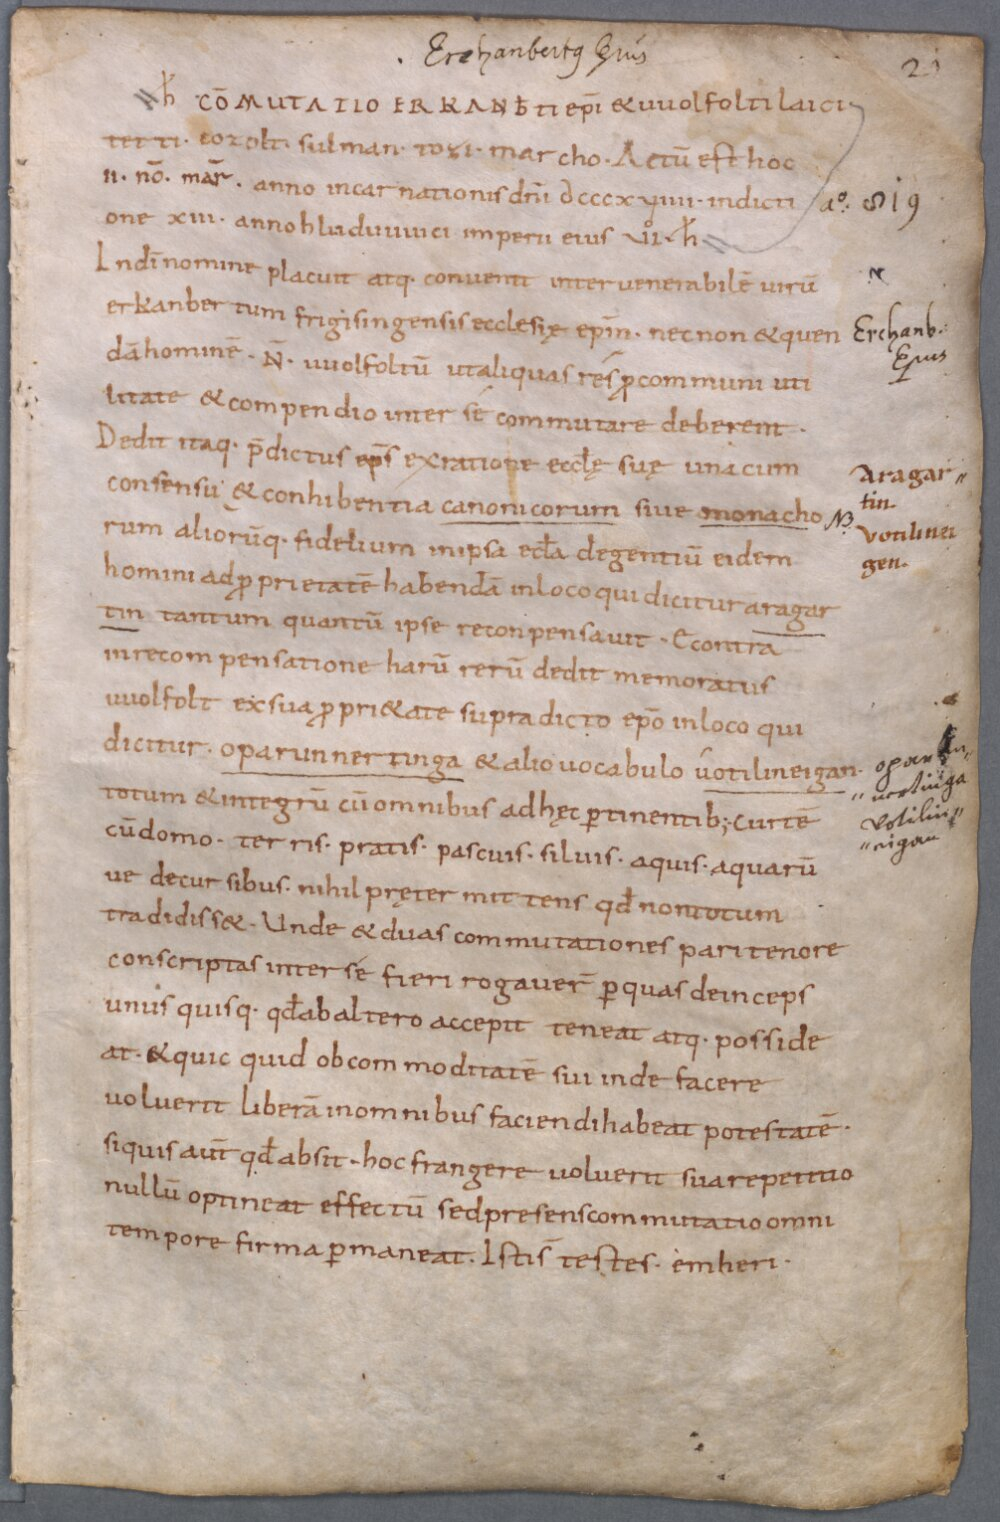 Erchanbertꝰ Epus
21
ħ COMUTATIO ERKANBti epi & uuolfolti laici
tetti. cozolt. sulman. tozi. marcho. Actū est hoc
II. nō. mar̄. anno incarnationis dn̄i dcccxviiii. indicti
aº. 819
one xiii. anno hluduuuici imperii eius vi. ħ
In dī nomine placuit atq. convenit inter venerabilē virū
N
erkanbertum frigisingensis ecclesię ep̄m. nec non & quen
Erchanb.
Epus
dā hominē. N̄. uuolfoltū ut aliquas res ꝓ communi uti
litate & compendio inter sé commutare deberent.
Dedit itaq. p̄dictus ep̄s ex ratione eccl̄ę suę una cum
Aragar〃
tin.
consensu & conhibentia canonicorum sive monacho
NB
votilinei
gen.
rum aliorūq. fidelium in ipsa ecl̄a degentiū eidem
homini ad ꝓprietatē habendā in loco qui dicitur aragar
tin tantum quantū ipse reconpensavit. Econtra
in recompensatione harū rerū dedit memoratus
uuolfolt ex sua ꝓpri&ate supradicto ep̄o in loco qui
dicitur. oparunnertinga & alio vocabulo uotilineigan.
oparun〃
〃nertinga
Votilin〃
〃eigan
totum & integrū cū omnibus ad hęc ꝑtinentib; curtē
cū domo. terris. pratis. pascuis. silvis. aquis. aquarū
ve decursibus. nihil pręter mittens qđ non totum
tradidiss&. Unde & duas commutationes pari tenore
conscriptas inter sé fieri rogaver̄ ꝑ quas deinceps
unus quisq. qđ ab altero accepit teneat atq. posside
at. & quic quid ob commoditatē sui inde facere
voluerit liberā in omnibus faciendi habeat potestatē.
siquis aut̄ qđ absit. hoc frangere voluerit sua repetitio
nullū optineat effectū sed presens commutatio omni
tempore firma ꝑmaneat. Istis testes. emheri.